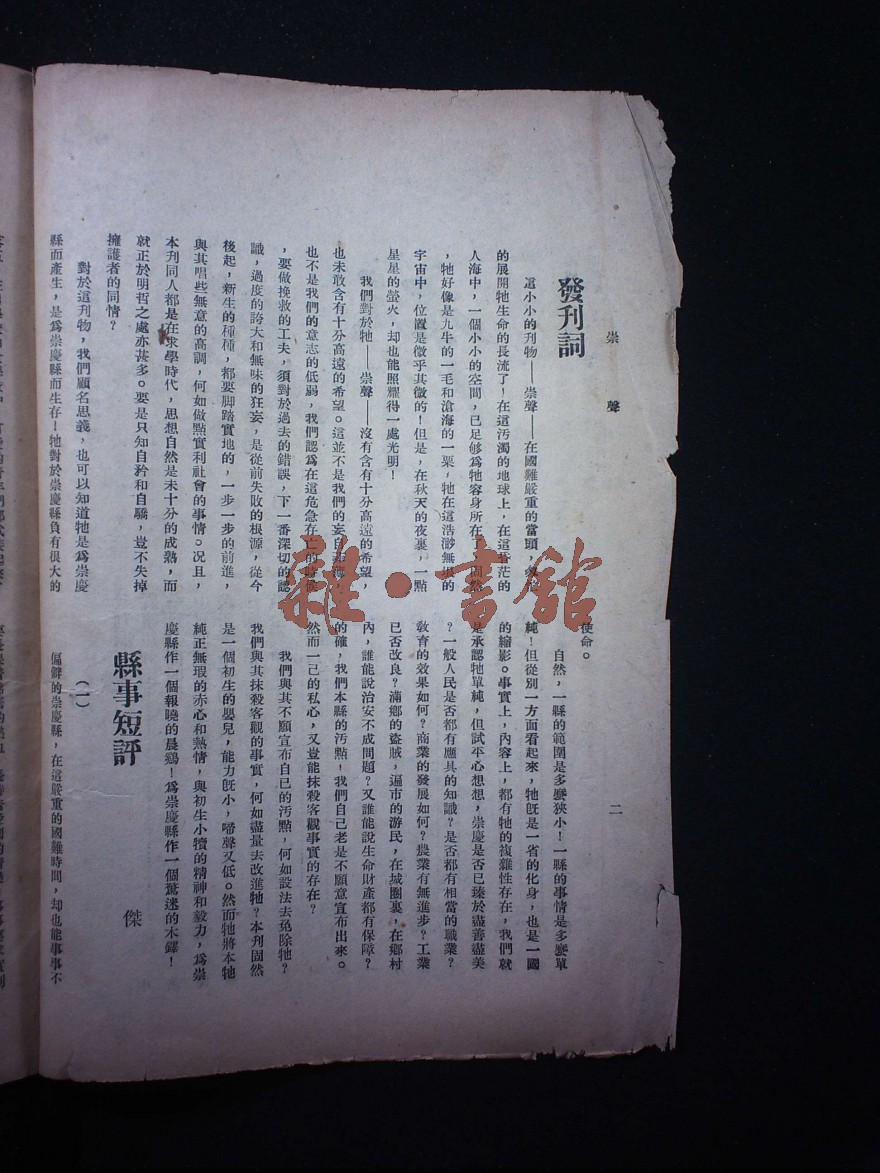 崇聲
二
發刊詞
這小小的刊物——崇聲——在國難嚴重的當頭,
的展開牠生命的長流了!在這汚濁的地球上,在這茫茫的
人海中,一個小小的空間,已足够爲牠容身所在了。固然
,牠好像是九牛的一毛和滄海的一粟,牠在這浩渺無垠的
宇宙中,位置是微乎其微的!但是,在秋天的夜裏,一點
星星的螢火,却也能照耀得一處光明!
我們對於牠——崇聲——沒有含有十分高遠的希望,
也未敢含有十分高遠的希望。這並不是我們的妄自
也不是我們的意志的低弱,我們認爲在這危急存亡的時候
,要做挽救的工夫,須對於過去的錯誤,下一番深切的認
識,過度的誇大和無味的狂妄,是從前失敗的根源,從今
後起,新生的種種,都要脚踏實地的,一步一步的前進,
與其唱些無意的高調,何如做點實利社會的事情。况且,
本刊同人都是在求學時代,思想自然是未十分的成熟,而
就正於明哲之處亦甚多。要是只知自矜和自驕,豈不失掉
擁護者的同情?
對於這刊物,我們顧名思義,也可以知道牠是爲崇慶
縣而產生,是爲崇慶縣而生存!牠對於崇慶縣負有很大的
使命。
自然,一縣的範圍是多麽狹小!一縣的事情是多麽單
純!但從別一方面看起來,牠旣是一省的化身,也是一國
的縮影。事實上,內容上,都有牠的複雜性存在,我們就
是承認牠單純,但試平心想想,崇慶是否已臻於盡善盡美
?一般人民是否都有應具的知識?是否都有相當的職業?
敎育的效果如何?商業的發展如何?農業有無進步?工業
已否改良?滿鄉的盜賊,遍市的游民,在城圈裏,在鄉村
內,誰能說治安不成問題?又誰能說生命財產都有保障?
的確,我們本縣的汚點!我們自己老是不願意宣布出來。
然而一己的私心,又豈能抹殺客觀事實的存在?
我們與其不願宣布自己的汚點,何如設法去免除牠?
我們與其抹殺客觀的事實,何如盡量去改進牠?本刊固然
是一個初生的嬰兒,能力旣小,啼聲又低。然而牠將本牠
純正無瑕的赤心和熱情,與初生小犢的精神和毅力,爲崇
慶縣作一個報曉的晨鷄!爲崇慶縣作一個驚迷的木鐸!
縣事短評
傑
(一)
偏僻的崇慶縣,在這嚴重的國難時間,却也能事事不
雜·書館